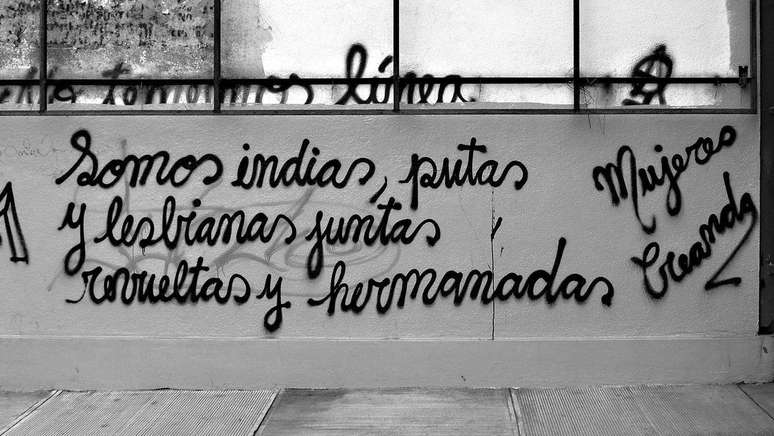 tenemos línea
Somos indias, putas
y lesbianas juntas
revueltas y hermanadas
Mujeres
Creando